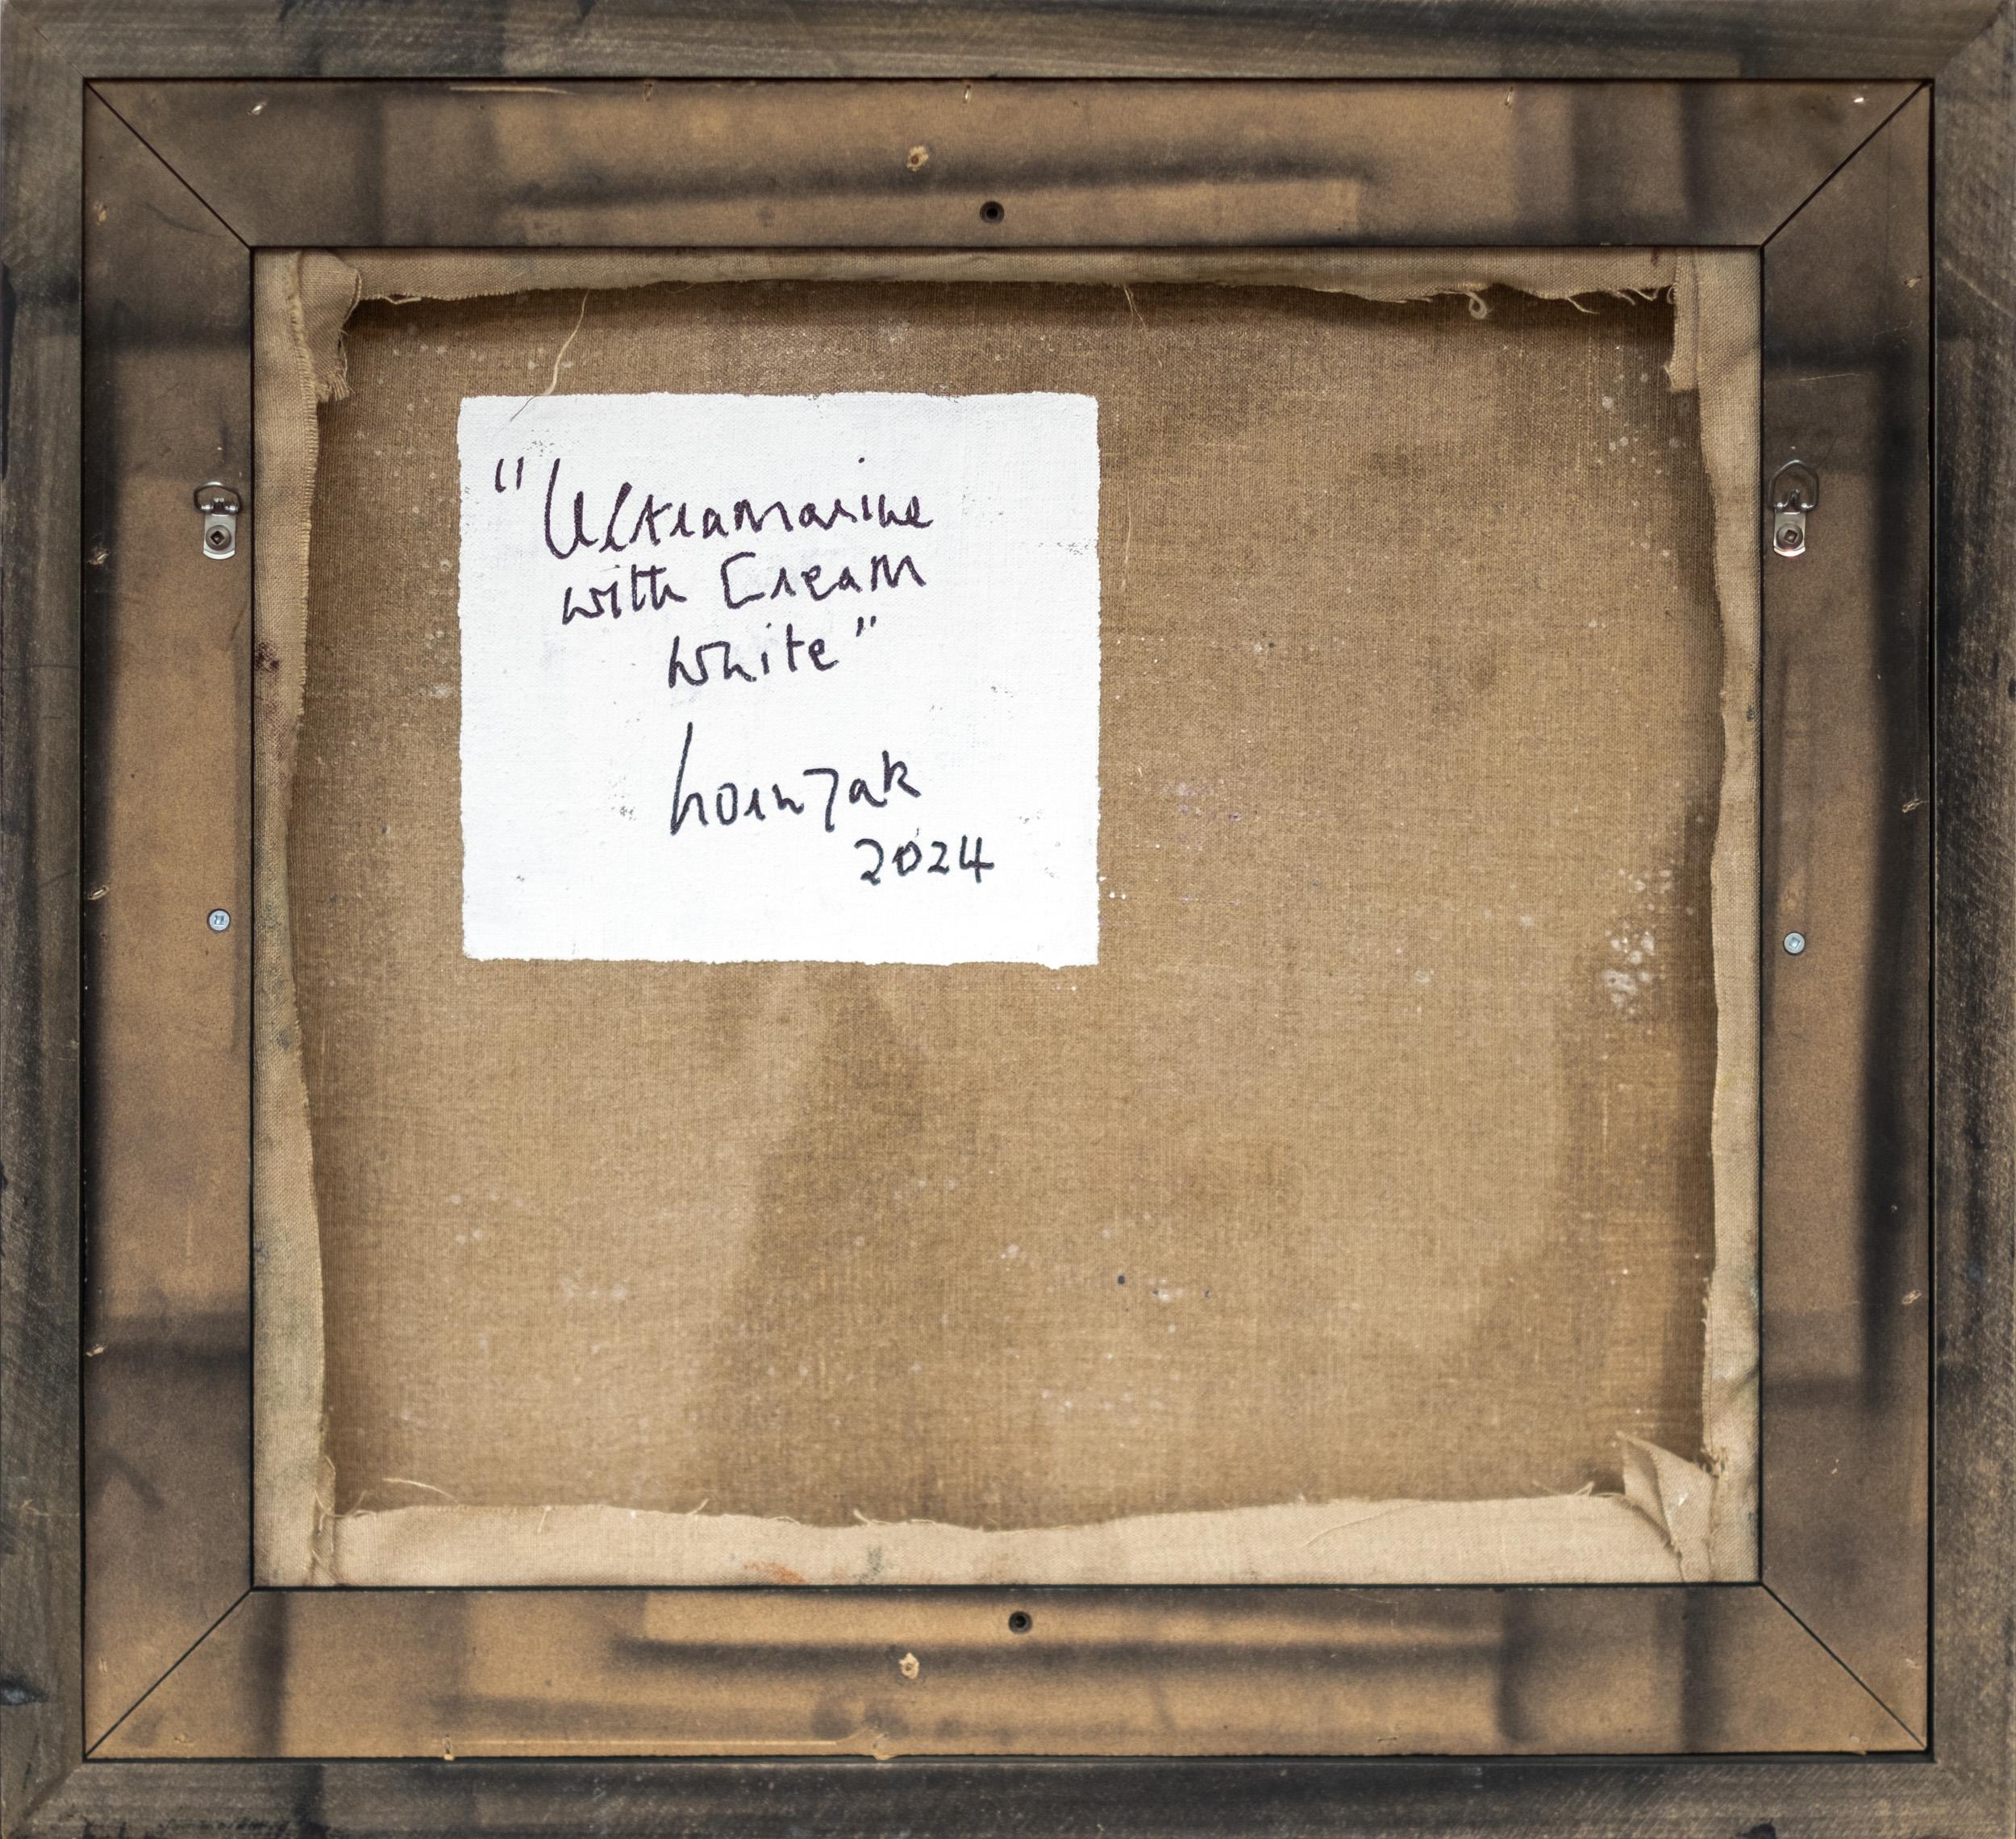 "Ultramarine
with Cream
White"
hornzak
2024